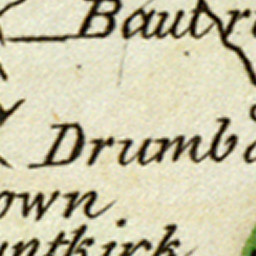 Bautr
Drumb
own
untkirk